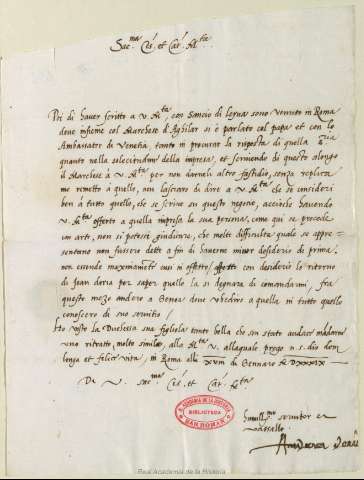 Sac.ma Ces.a et Cat.a M.ta
Poi di haver scritto a V. M.ta, con Sancio di Leyva sono venuto in Roma
dove insieme col Marchese d'Aghilar si è parlato col papa et con lo
Ambasator di Venetia, tanto in procurar la risposta di quella
quanto nella solecitudine della impresa, et scrivendo di questo alongo
il Marchese a V. M.ta per non darnuli altro fastidio, senza replica
me remetto a quello, non lasciaro di dire a V. M.ta che se consideri
ben a tutto quello, che se scrive su questo negocio, acciochè havendo
V. M.ta offerto a quella impresa la sua persona, como qui se procede
non si potesse giudicare, che molte difficultà quale se appre-
sentano non fussero dette a fin di haverne minor desiderio di prima.
non essendo maximamente cusi in effetto, con desiderio lo ritorno
di Joan doria per saper quello la si degnara di comandarmi, fra
questo mezo andero a Genoa dove obediro a quella in tutto quello
conoscero di suo servitio.
Ho visto la Duchessa sua figliola tanto bella che
uno ritratto molto simile, alla M.ta V. allaquale prego n. s. dio don
longa et felice vita, in Roma alli XVIII di Gennaro M D XXXIX
De V. Sac.ma Ces.a et Cat. M.ta
R. ACADEMIA DE LA HISTORIA
BIBLIOTECA
SAN ROMAN
humill.mo servitor et
vassallo
Andrea Doria
Real Academia de la Historia